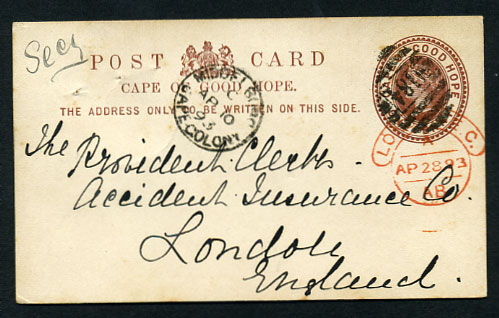 Secy
POST CARD
CAPE OF GOOD HOPE.
THE ADDRESS ONLY TO BE WRITTEN ON THIS SIDE.
GOOD HOPE
CAPE COLONY
AP
93
LO C.
A
AP 28 93
AB
The Provident Clerks
Accident Insurance Co.
London
England.